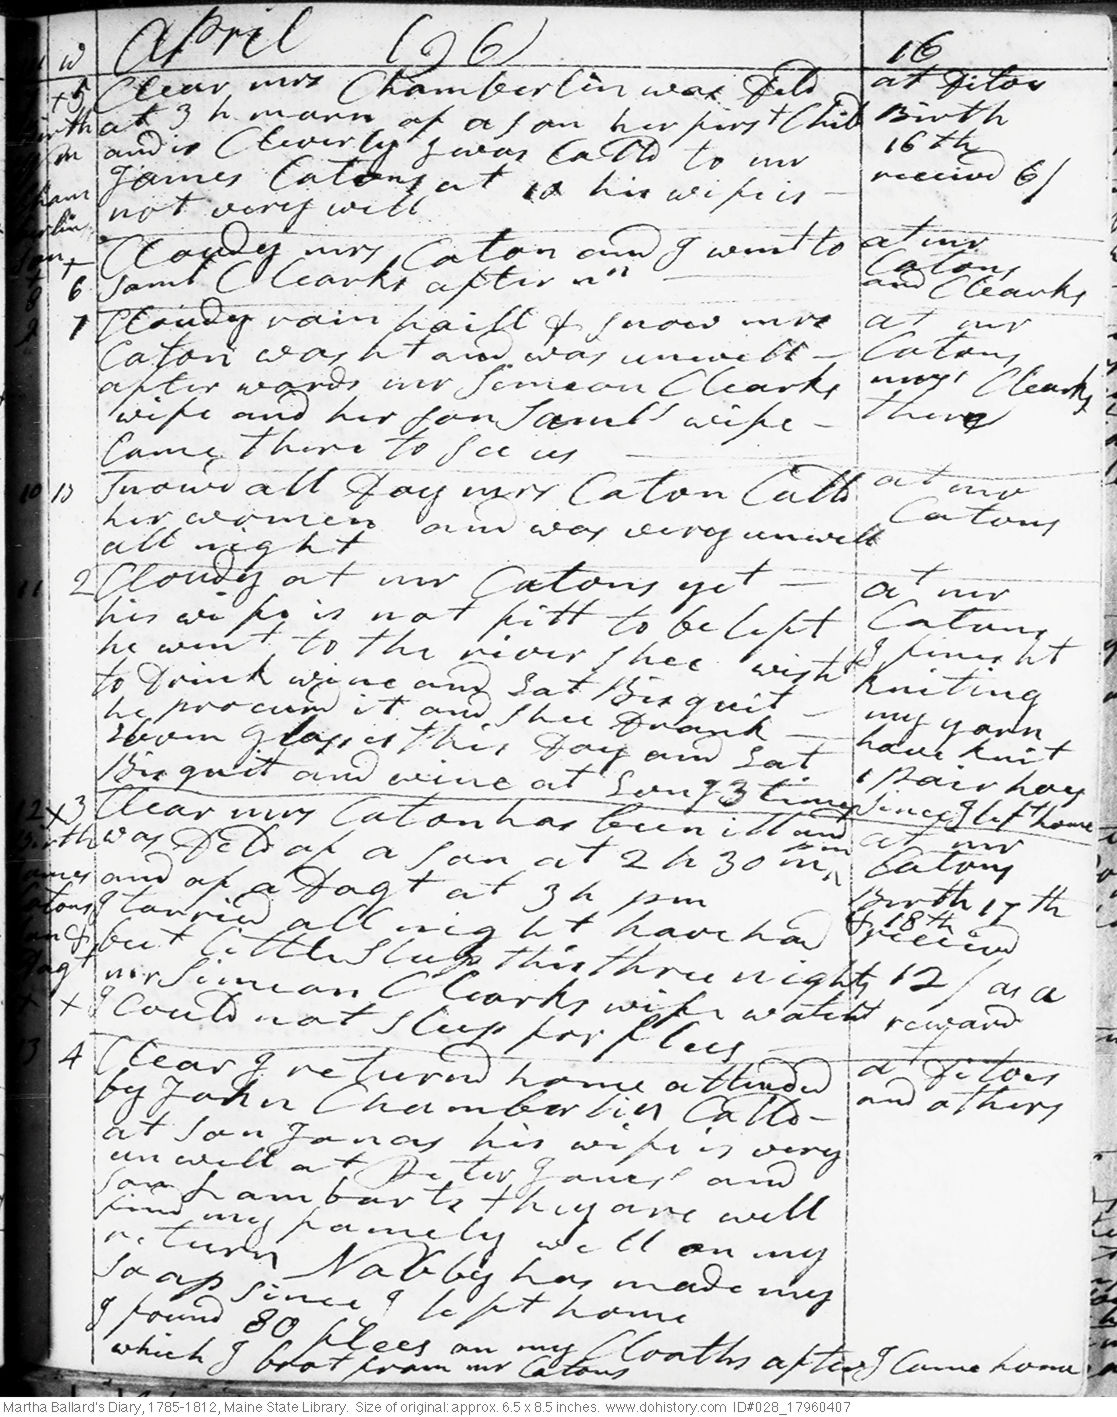 m w April 1796 16
7 +5 Clear mrs Chamberlin was Deld at Ditoes
Birth at 3 h morn of a son her first Child Birth
and is Cleverly I was Calld to mr 16th
James Catons at 10 his wife is – received 6/
Cham
berlins
son +
not very well
8 6 Cloudy mrs Caton and I went to at mr
Saml Clearks after n" Catons
and Clearks
9 7 Cloudy rain haill & snow mrs at mr
Caton washt and was unwell – Catons
after wards mr Simeon Clearks mrss Clearks
wife and her son Samls wife – there
Came there to See us
10 D Snowd all Day mrs Caton Calld at mr
her women and was very unwell Catons
all night
11 2 Cloudy at mr Catons yet – at mr
his wife is not fitt to be left Catons
he went to the river shee wisht I finisht
to Drink wine and Eat Bisquit kniting
he procurd it and shee Drank – my yarn
Glasses this Day and Eat have knit
Bisquitt and wine at Evng 3 times 1 Pair hoes
since I left home
12 x 3 Clear mrs Caton has been ill and at mr
Birth was Deld of a son at 2 h 30 mn pm Catons
James and of a Dagt at 3 h pm Birth 17th
Catons I tarried all night have had & 18th
son & but little sleep this three nights received
Dagt mr Simeon Clearks wife watcht 12/ as a
x x I Could not sleep for flees – reward
13 4 Clear I returnd home attended at Ditoes
by John Chamberlin Calld – and others
at son Jonas his wife is very
unwell at Peter Jones' and
son Lambarts they are well
find my famely well on my
return Nabby has made my
soap since I left home
I found 80 flees on my Cloaths after I Came home
which I brot from mr Catons
Martha Ballard's Diary, 1785-1812, Maine State Library. Size of original: approx. 6.5 x 8.5 inches. www.dohistory.com ID#028_17960407